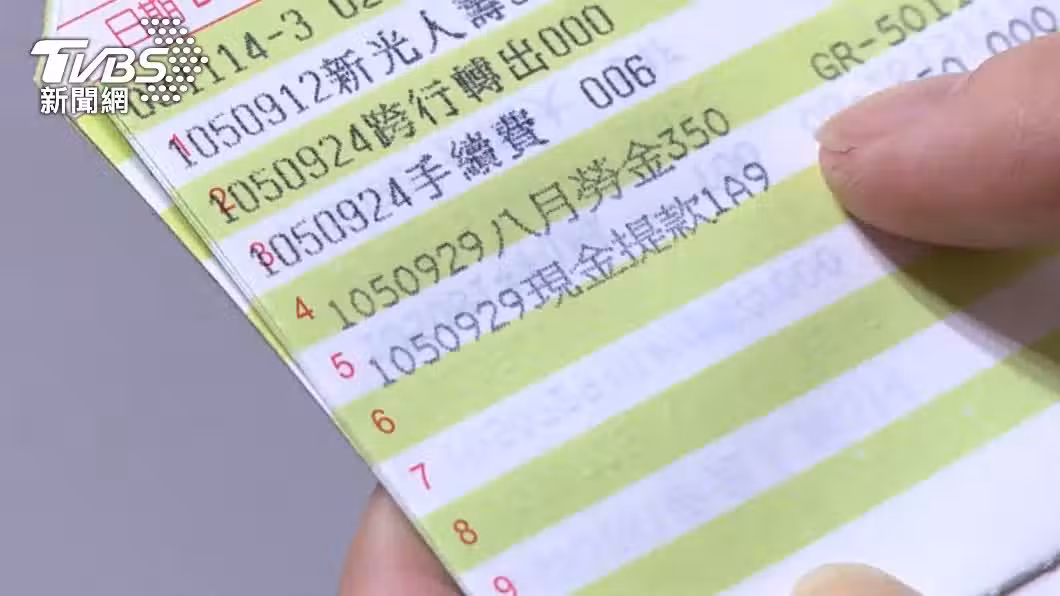 TVBS
新聞網
日期
114-3 02
1 1050912新光人壽
2 1050924跨行轉出000
3 1050924手續費 006
4 1050929八月勞金350
GR-501
5 1050929現金提款1A9
6
7
8
9